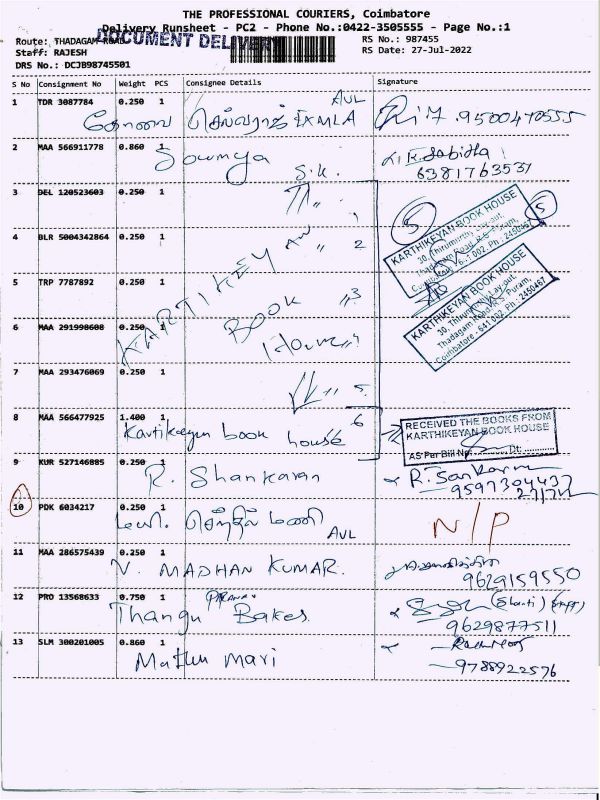 THE PROFESSIONAL COURIERS, Coimbatore
Delivery Runsheet - PC2 - Phone No.:0422-3505555 - Page No.:1
DOCUMENT DELIVERY
Route: THADAGAM ROAD
RS No.: 987455
Staff: RAJESH
RS Date: 27-Jul-2022
DRS No.: DCJB98745501
S No Consignment No Weight PCS Consignee Details Signature
1 TDR 3087784 0.250 1 AVL
கோவை செல்வராஜ் EXMLA 9500470555
2 MAA 566911778 0.860 1 Sowmya S.K.
6381763537
3 DEL 120523603 0.250 1
4 BLR 5004342864 0.250 1 2
5 TRP 7787892 0.250 1 3
KARTIKEYAN
BOOK
House
6 MAA 291998608 0.250 1
7 MAA 293476069 0.250 1 5
5
5
KARTHIKEYAN BOOK HOUSE
30, Thirumurthy Lay-out,
Thadagam Road, R.S. Puram,
Coimbatore - 641 002. Ph : 2450467
KARTHIKEYAN BOOK HOUSE
30, Thirumurthy Lay-out,
Thadagam Road, R.S. Puram,
Coimbatore - 641 002. Ph : 2450467
8 MAA 566477925 1.400 1 6
Kartikeyan book house
RECEIVED THE BOOKS FROM
KARTHIKEYAN BOOK HOUSE
AS Per Bill No: Dt:
9 KUR 527146885 0.250 1
R. Shankaran R. Sankaran
9597304437
10 PDK 6034217 0.250 1
செந்தில் மணி AVL N/P
11 MAA 286575439 0.250 1
V. MADHAN KUMAR.
9629159550
12 PRO 13568633 0.750 1
Thangu Bakes (Shanti) Staff
9629877511
13 SLM 300201005 0.860 1
Muthu Mari
9788922576